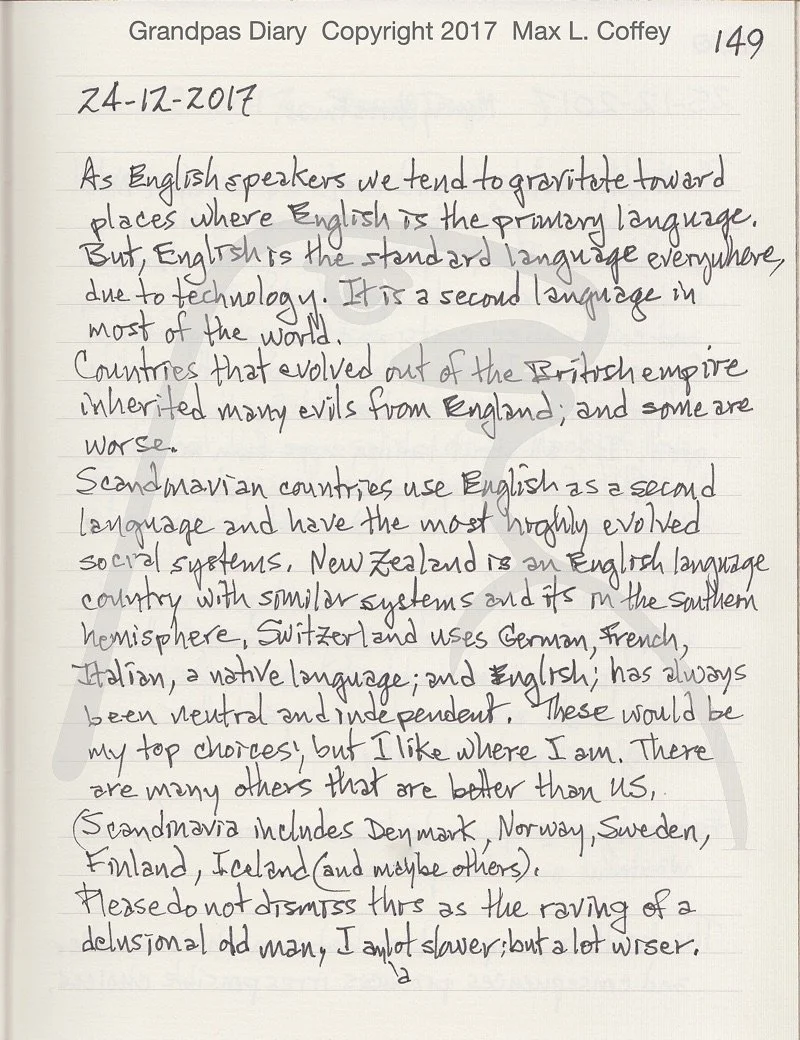 Grandpas Diary Copyright 2017 Max L. Coffey
149
24-12-2017
As English speakers we tend to gravitate toward
places where English is the primary language.
But, English is the standard language everywhere,
due to technology. It is a second language in
most of the world.
Countries that evolved out of the British empire
inherited many evils from England; and some are
worse.
Scandinavian countries use English as a second
language and have the most highly evolved
social systems. New Zealand is an English language
country with similar systems and its in the southern
hemisphere. Switzerland uses German, French,
Italian, a native language; and English; has always
been neutral and independent. These would be
my top choices; but I like where I am. There
are many others that are better than US.
(Scandinavia includes Denmark, Norway, Sweden,
Finland, Iceland (and maybe others).
Please do not dismiss this as the raving of a
delusional old man, I am lot slower; but a lot wiser.
a